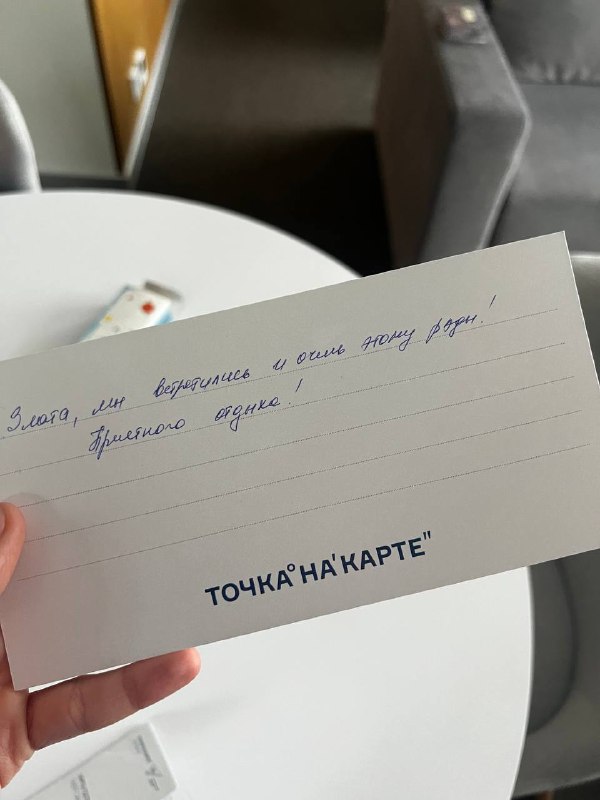 Злата, мы встретились и очень этому рады!
Приятного отдыха!
ТОЧКА° НА' КАРТЕ"